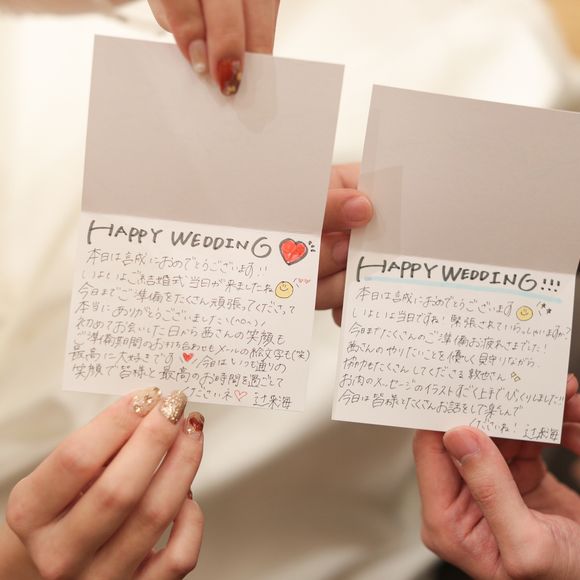 HAPPY WEDDING
本日は誠におめでとうございます!!
いよいよご結婚式当日が来ましたね
今日までご準備をたくさん頑張ってくださって
本当にありがとうございました
初めてお会いした日から茜さんの笑顔も
ご準備期間のお打ち合わせもメールの絵文字も(笑)
最高に大好きです 今日はいつも通りの
笑顔で皆様と最高のお時間を過ごして
くださいネ♡ 辻 来海
HAPPY WEDDING!!!
本日は誠におめでとうございます
いよいよ当日ですね! 緊張されていらっしゃいますか?
今日までたくさんのご準備お疲れさまでした!
茜さんのやりたいことを優しく見守りながら、
協力もたくさんしてくださる敦也さん
お肉のメッセージのイラストすごく上手でびっくりしました!!
今日は皆様とたくさんお話をして楽しんで
くださいね! 辻 来海